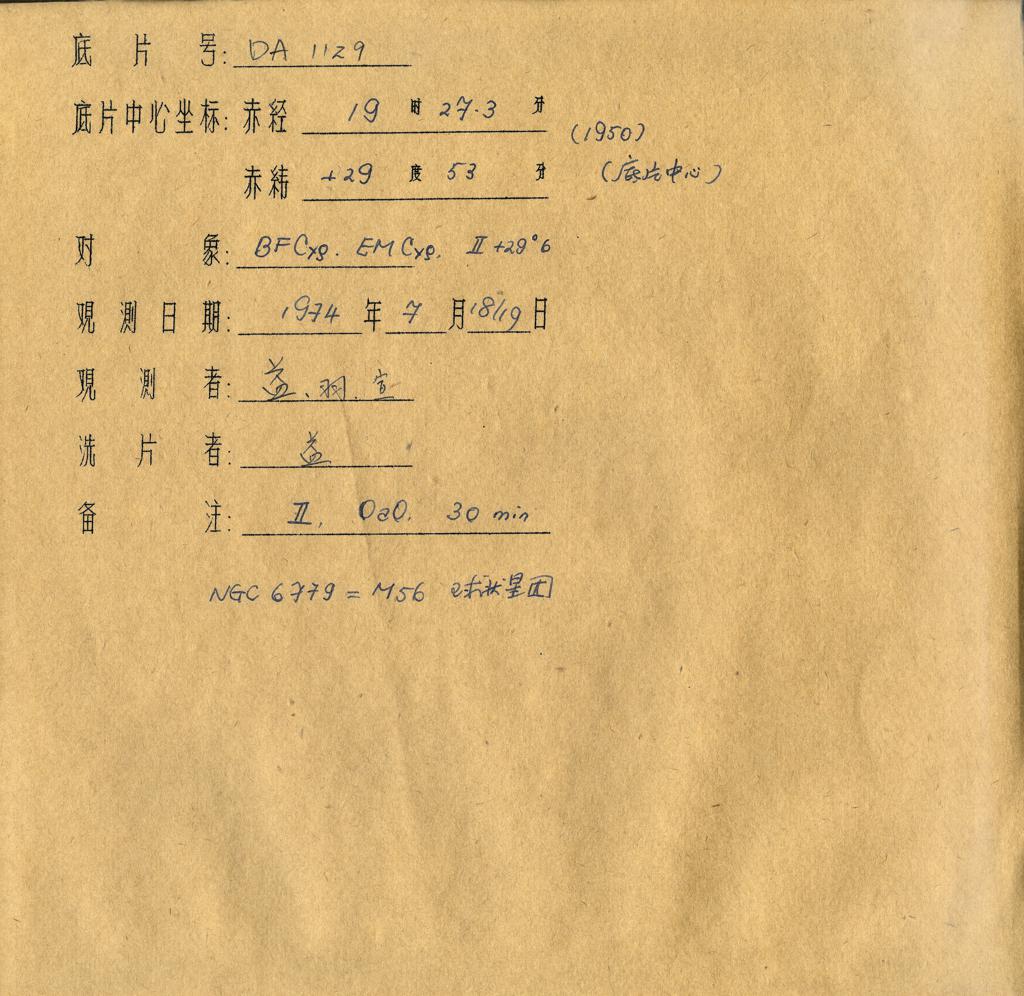 底片号: DA 1129
底片中心坐标: 赤经 19 时 27.3 分 (1950)
赤纬 +29 度 53 分 (底片中心)
对象: BF Cyg. EM Cyg. II +29°6
观测日期: 1974 年 7 月 18/19 日
观测者: 益、羽、宣
洗片者: 益
备注: II, OaO, 30 min
NGC 6779 = M56 球状星团